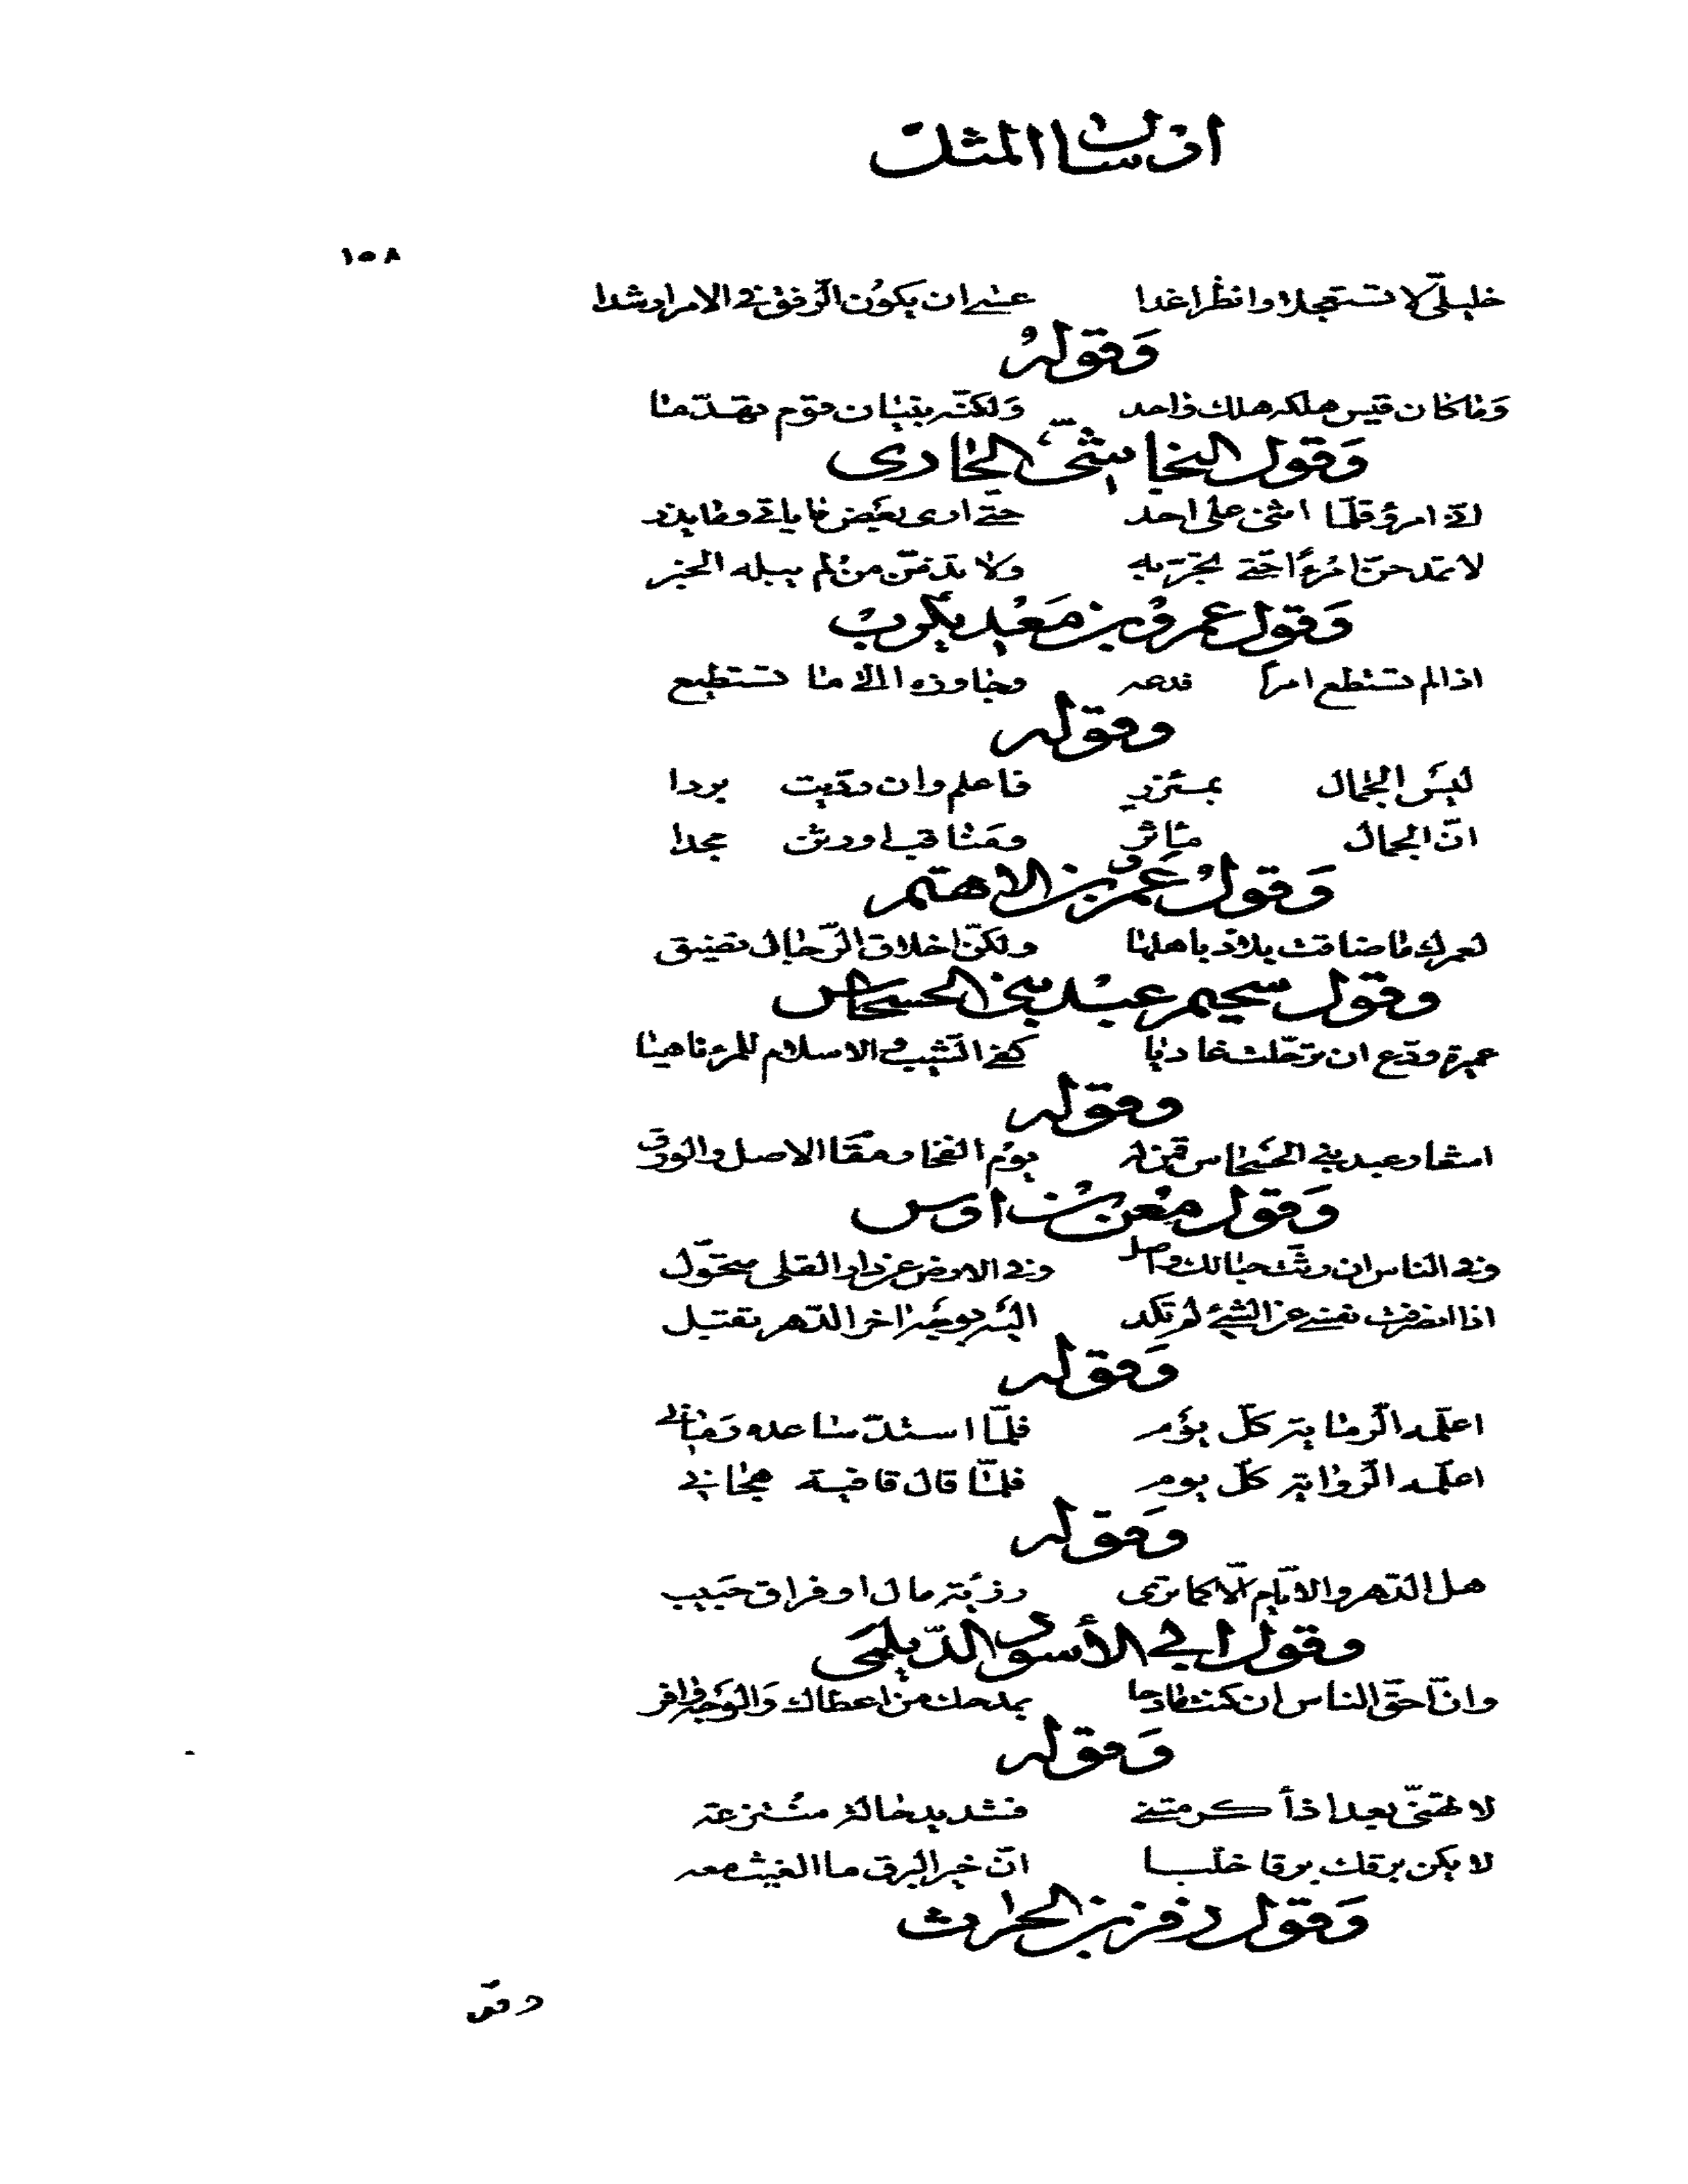 ارسال المثل
١٥٨
خليليّ لا تستعجلا وانظرا غدا عسى ان يكون الرّفق في الامر ارشدا
وَقوله
وَما كان قيس هلكه هلك واحد وَلكنّه بنيان قوم تهدّما
وَقول النجاشيّ الحارثى
انّي امرؤ قلّما اثنى على احد حتّى ارى بعَض ما ياتي وما يذر
لا تمدحنّ امرءًا حتّى تجرّبه وَلا تذمّنّ من لم يبله الخبر
وَقول عمرو بن مَعْد يكرب
اذا لم تستطع امراً فدعه وجاوزه الى ما تستطيع
وقوله
ليَس الجمال بمئزرٍ فاعلم وان ردّيت بردا
انّ الجمال مآثر ومَناقب اورثن مجدا
وَقول عَمرو بن الاهتم
لعمرك ما ضاقت بلاد باهلها ولكنّ اخلاق الرّجال تضيق
وقول سحيم عبد بنى الحسحاس
عميرة ودّع ان ترحّلت غاديا كفى الشّيب والاسلام للمرء ناهيا
وقوله
اشعار عبد بني الحَسحاس قمن له يوم الفخار مقَام الاصل والورق
وَقول مَعن بن اوس
وفي الناس ان رثّت حبالك واصل وفي الارض عن دار القلى متحوّل
اذا انصرفت نفسي عن الشيء لم تكد اليَه بوجَه اخر الدّهر تقبل
وَقوله
اعلّمه الرّماية كلّ يوَم فلمّا استدّ ساعده رَماني
اعلّمه الرّواية كلّ يوم فلمّا قال قافية هجاني
وَقوله
هل الدّهر والايّام الّا كما ترى رزيّة مال او فراق حَبيب
وقول ابي الأسود الدّيلمَى
وانّ احقّ الناس ان كنت مادحا بمدحك من اعطاك وَالوَجه وافر
وَقوله
لا تهنّي بعد اذ أكرمتني فشديد حالة مُنتزعة
لا يكن برقك برقا خلّبا انّ خير البرق ما الغيث معه
وَقول زفر بن الحارث